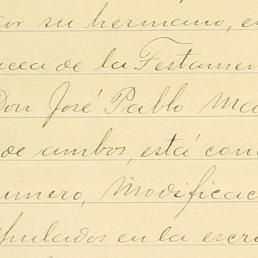 por su hermano, e
acea de la Testamen
Don José Pablo Ma
de ambos, está con
rimero, Modificac
ipulados en la escri